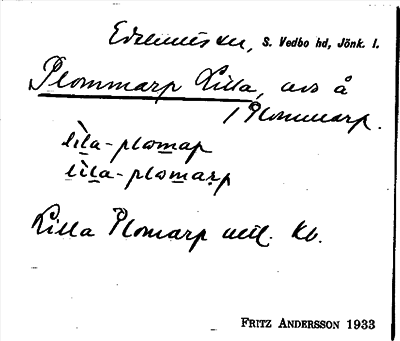 Edshults sn, S. Vedbo hd, Jönk. l.
Plommarp Lilla, avs å
/ Plommarp.
lila-plomap
lila-plomarp
Lilla Plomarp utt. kb.
FRITZ ANDERSSON 1933